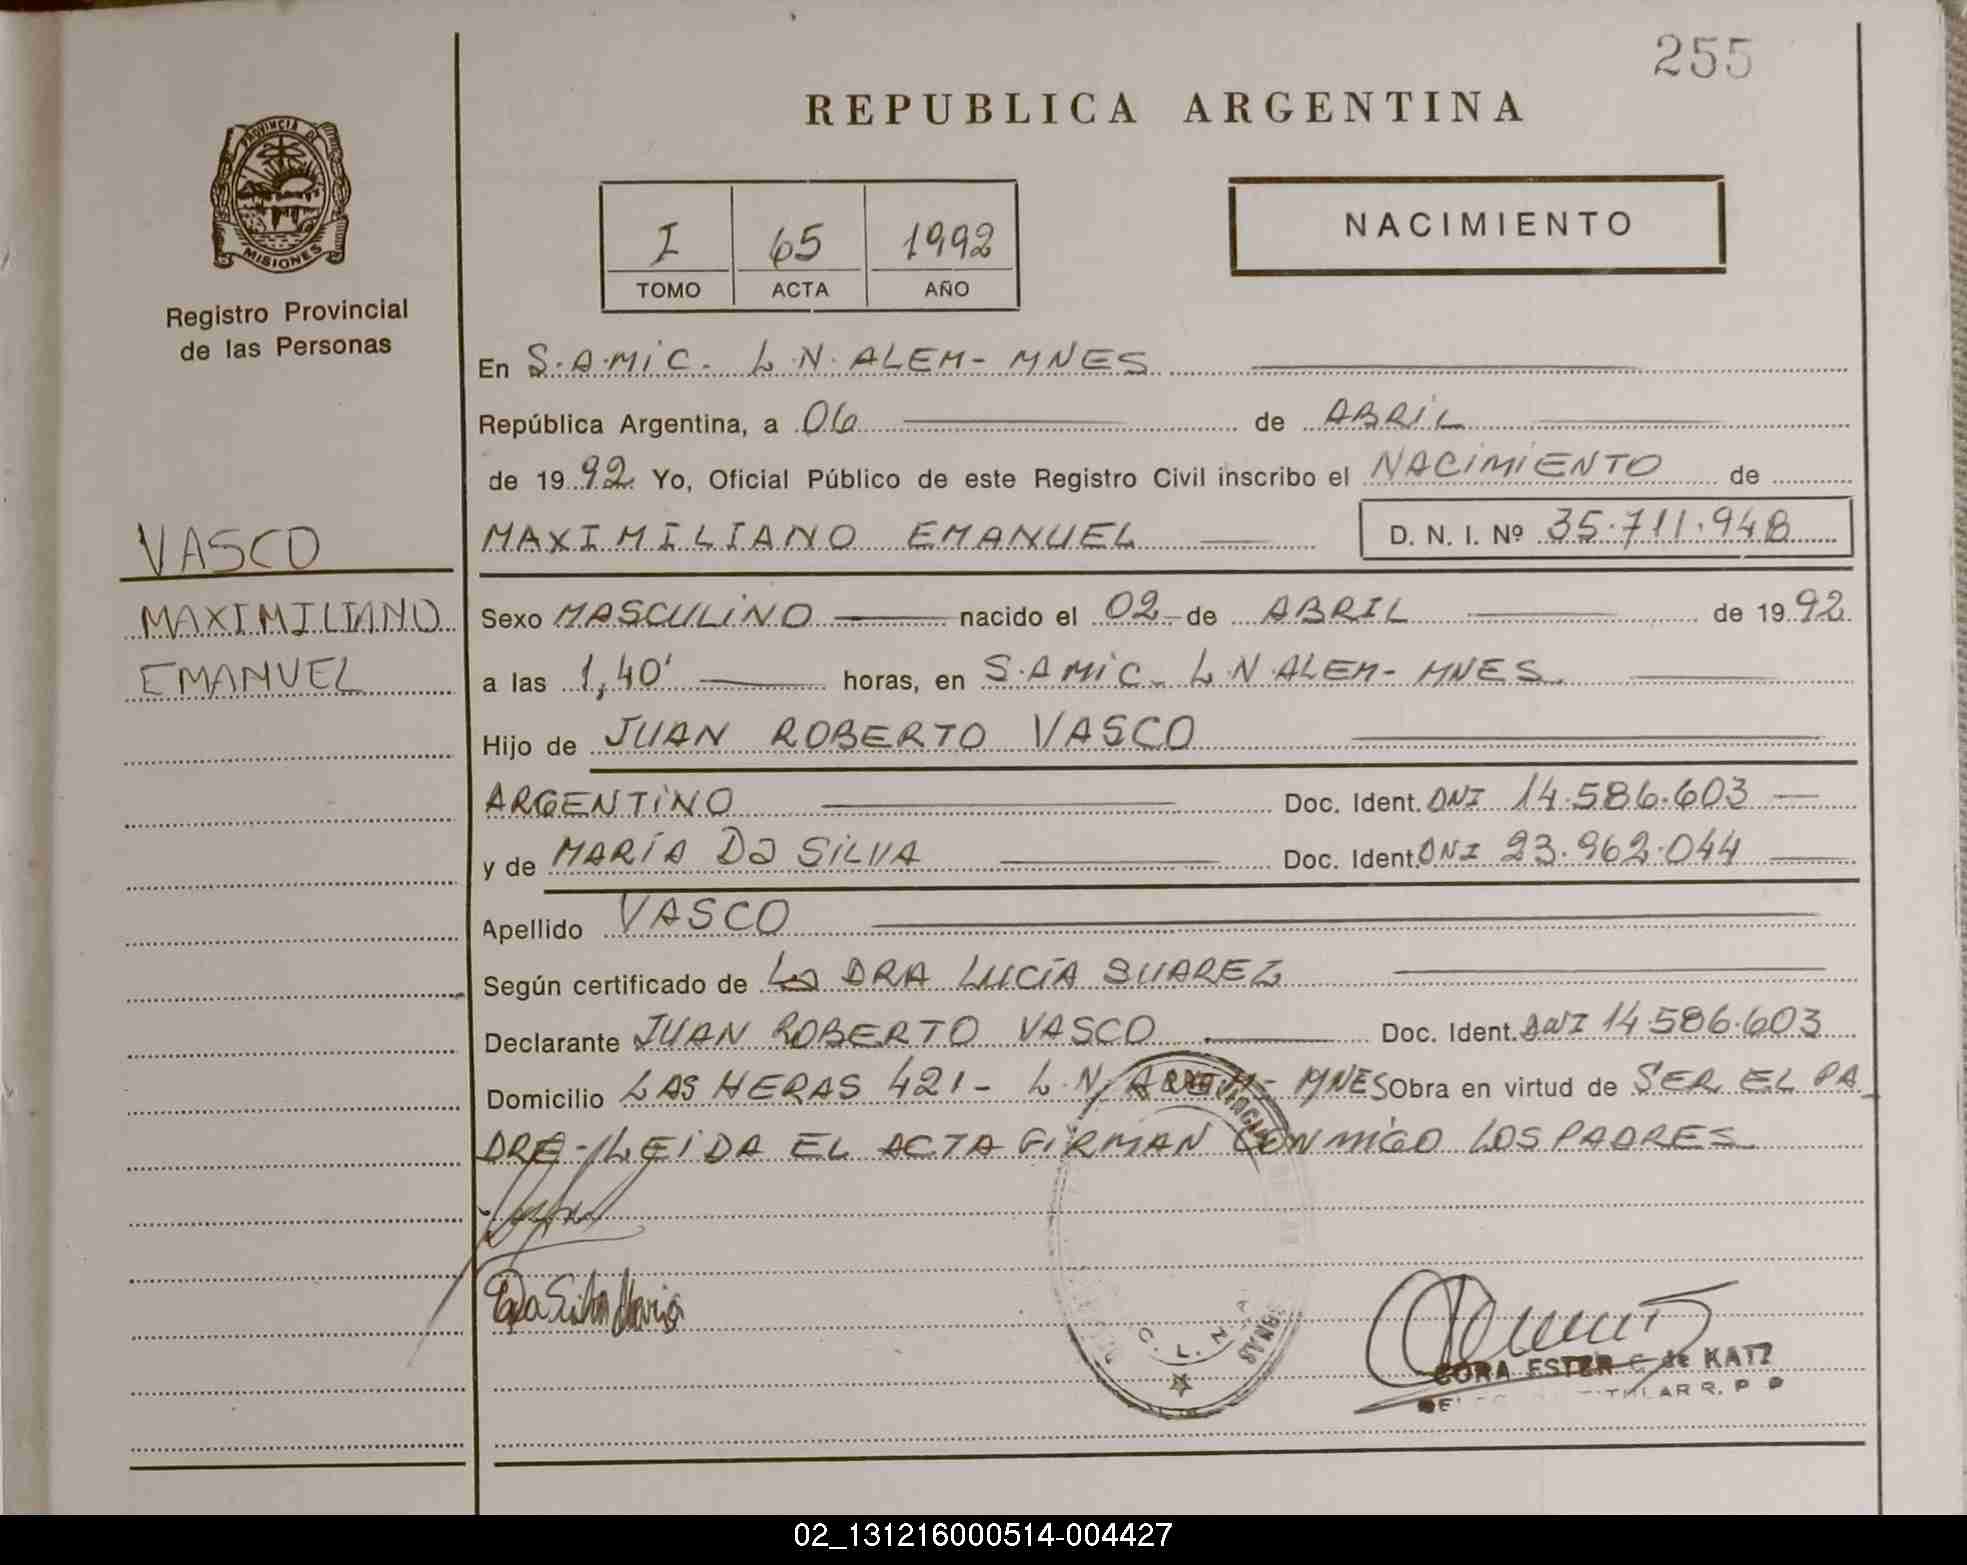 255
REPUBLICA ARGENTINA
PROVINCIA DE
MISIONES
Registro Provincial
de las Personas
I 65 1992
TOMO ACTA AÑO
NACIMIENTO
En S.A.MiC. L.N.ALEM-MNES
República Argentina, a 06 de ABRIL
de 1992 Yo, Oficial Público de este Registro Civil inscribo el NACIMIENTO de
MAXIMILIANO EMANUEL D. N. I. Nº 35.711.948
VASCO
MAXIMILIANO
EMANUEL
Sexo MASCULINO nacido el 02 de ABRIL de 1992
a las 1,40' horas, en S.AMiC. L.N.ALEM-MNES
Hijo de JUAN ROBERTO VASCO
ARGENTINO Doc. Ident. DNI 14.586.603
y de MARÍA Da SILVA Doc. Ident. DNI 23.962.044
Apellido VASCO
Según certificado de La DRA LUCÍA SUAREZ
Declarante JUAN ROBERTO VASCO Doc. Ident. DNI 14.586.603
Domicilio LAS HERAS 421- L.N.ALEM- MNES Obra en virtud de SER EL PA
DRE-LEIDA EL ACTA FIRMAN CONMIGO LOS PADRES
Da Silva Maria
C. L. N. A.
CORA ESTER C. de KATZ
TITULAR R. P. P
02_131216000514-004427